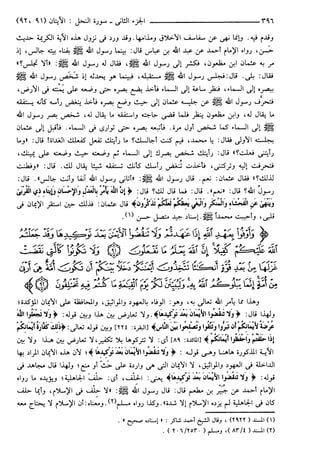 ٣٩٦ ـــــــــ الجزء الثانى ـ سورة النحل : الآيتان (٩١ ، ٩٢)
وقدم فيه. وإنما نهى عن سفاسف الأخلاق ومذامها. وقد ورد فى نزول هذه الآية الكريمة حديث
حسن، رواه الإمام أحمد عن عبد الله بن عباس قال: بينما رسول الله ﷺ بفناء بيته جالس، إذ
مر به عثمان ابن مظعون، فكشر إلى رسول الله ﷺ، فقال له رسول الله ﷺ: «ألا تجلس؟»
فقال: بلى. قال: فجلس رسول الله ﷺ مستقبله، فبينما هو يحدثه إذ شخص رسول الله ﷺ
ببصره إلى السماء، فنظر ساعة إلى السماء فأخذ يضع بصره حتى وضعه على يمنته فى الأرض،
فتحرف رسول الله ﷺ عن جليسه عثمان إلى حيث وضع بصره فأخذ ينغض رأسه كأنه يستفقه
ما يقال له، وابن مظعون ينظر فلما قضى حاجته واستفقه ما يقال له، شخص بصر رسول الله
ﷺ إلى السماء كما شخص أول مرة. فأتبعه بصره حتى توارى فى السماء. فأقبل إلى عثمان
بجلسته الأولى فقال: يا محمد، فيم كنت أجالسك؟ ما رأيتك تفعل كفعلك الغداة! قال: «وما
رأيتنى فعلت؟» قال: رأيتك شخص بصرك إلى السماء ثم وضعته حيث وضعته على يمينك،
فتحرفت إليه وتركتنى، فأخذت تنغض رأسك كأنك تستفقه شيئا يقال لك. قال: «وفطنت
لذلك؟» فقال عثمان: نعم. قال رسول الله ﷺ: «أتانى رسول الله آنفا وأنت جالس». قال:
رسول الله؟ قال: «نعم». قال: فما قال لك؟ قال: ﴿إِنَّ اللَّهَ يَأْمُرُ بِالْعَدْلِ وَالْإِحْسَانِ وَإِيتَاءِ ذِي الْقُرْبَىٰ
وَيَنْهَىٰ عَنِ الْفَحْشَاءِ وَالْمُنكَرِ وَالْبَغْيِ يَعِظُكُمْ لَعَلَّكُمْ تَذَكَّرُونَ﴾ قال عثمان: فذلك حين استقر الإيمان فى
قلبى، وأحببت محمدا ﷺ. إسناد جيد متصل حسن (١).
﴿وَأَوْفُوا بِعَهْدِ اللَّهِ إِذَا عَاهَدتُّمْ وَلَا تَنقُضُوا الْأَيْمَانَ بَعْدَ تَوْكِيدِهَا وَقَدْ جَعَلْتُمُ
اللَّهَ عَلَيْكُمْ كَفِيلًا إِنَّ اللَّهَ يَعْلَمُ مَا تَفْعَلُونَ ۝ وَلَا تَكُونُوا كَالَّتِي نَقَضَتْ
غَزْلَهَا مِن بَعْدِ قُوَّةٍ أَنكَاثًا تَتَّخِذُونَ أَيْمَانَكُمْ دَخَلًا بَيْنَكُمْ أَن تَكُونَ أُمَّةٌ هِيَ أَرْبَىٰ مِنْ
أُمَّةٍ إِنَّمَا يَبْلُوكُمُ اللَّهُ بِهِ وَلَيُبَيِّنَنَّ لَكُمْ يَوْمَ الْقِيَامَةِ مَا كُنتُمْ فِيهِ تَخْتَلِفُونَ ۝﴾
وهذا مما يأمر الله تعالى به، وهو: الوفاء بالعهود والمواثيق، والمحافظة على الأيمان المؤكدة؛
ولهذا قال: ﴿وَلَا تَنقُضُوا الْأَيْمَانَ بَعْدَ تَوْكِيدِهَا﴾. ولا تعارض بين هذا وبين قوله: ﴿وَلَا تَجْعَلُوا اللَّهَ
عُرْضَةً لِّأَيْمَانِكُمْ أَن تَبَرُّوا وَتَتَّقُوا وَتُصْلِحُوا بَيْنَ النَّاسِ﴾ [البقرة: ٢٢٤] وبين قوله تعالى: ﴿ذَٰلِكَ كَفَّارَةُ أَيْمَانِكُمْ
إِذَا حَلَفْتُمْ وَاحْفَظُوا أَيْمَانَكُمْ﴾ [المائدة: ٨٩] أى: لا تتركوها بلا تكفير، لا تعارض بين هذا ولا بين
الآية المذكورة هاهنا وهى قوله: ﴿وَلَا تَنقُضُوا الْأَيْمَانَ بَعْدَ تَوْكِيدِهَا﴾؛ لأن هذه الأيمان المراد بها
الداخلة فى العهود والمواثيق، لا الأيمان التى هى واردة على حث أو منع؛ ولهذا قال مجاهد فى
قوله: ﴿وَلَا تَنقُضُوا الْأَيْمَانَ بَعْدَ تَوْكِيدِهَا﴾ يعنى: الحلف، أى: حلف الجاهلية؛ ويؤيده ما رواه
الإمام أحمد عن جبير بن مطعم قال: قال رسول الله ﷺ: «لا حلف فى الإسلام، وأيما حلف
كان فى الجاهلية لم يزده الإسلام إلا شدة». وكذا رواه مسلم(٢). ومعناه: أن الإسلام لا يحتاج معه
(١) المسند (٢٩٢٢) ، وقال الشيخ أحمد شاكر : «إسناده صحيح» .
(٢) المسند (٤ / ٨٣) ، ومسلم (٢٥٣٠ / ٢٠٦) .